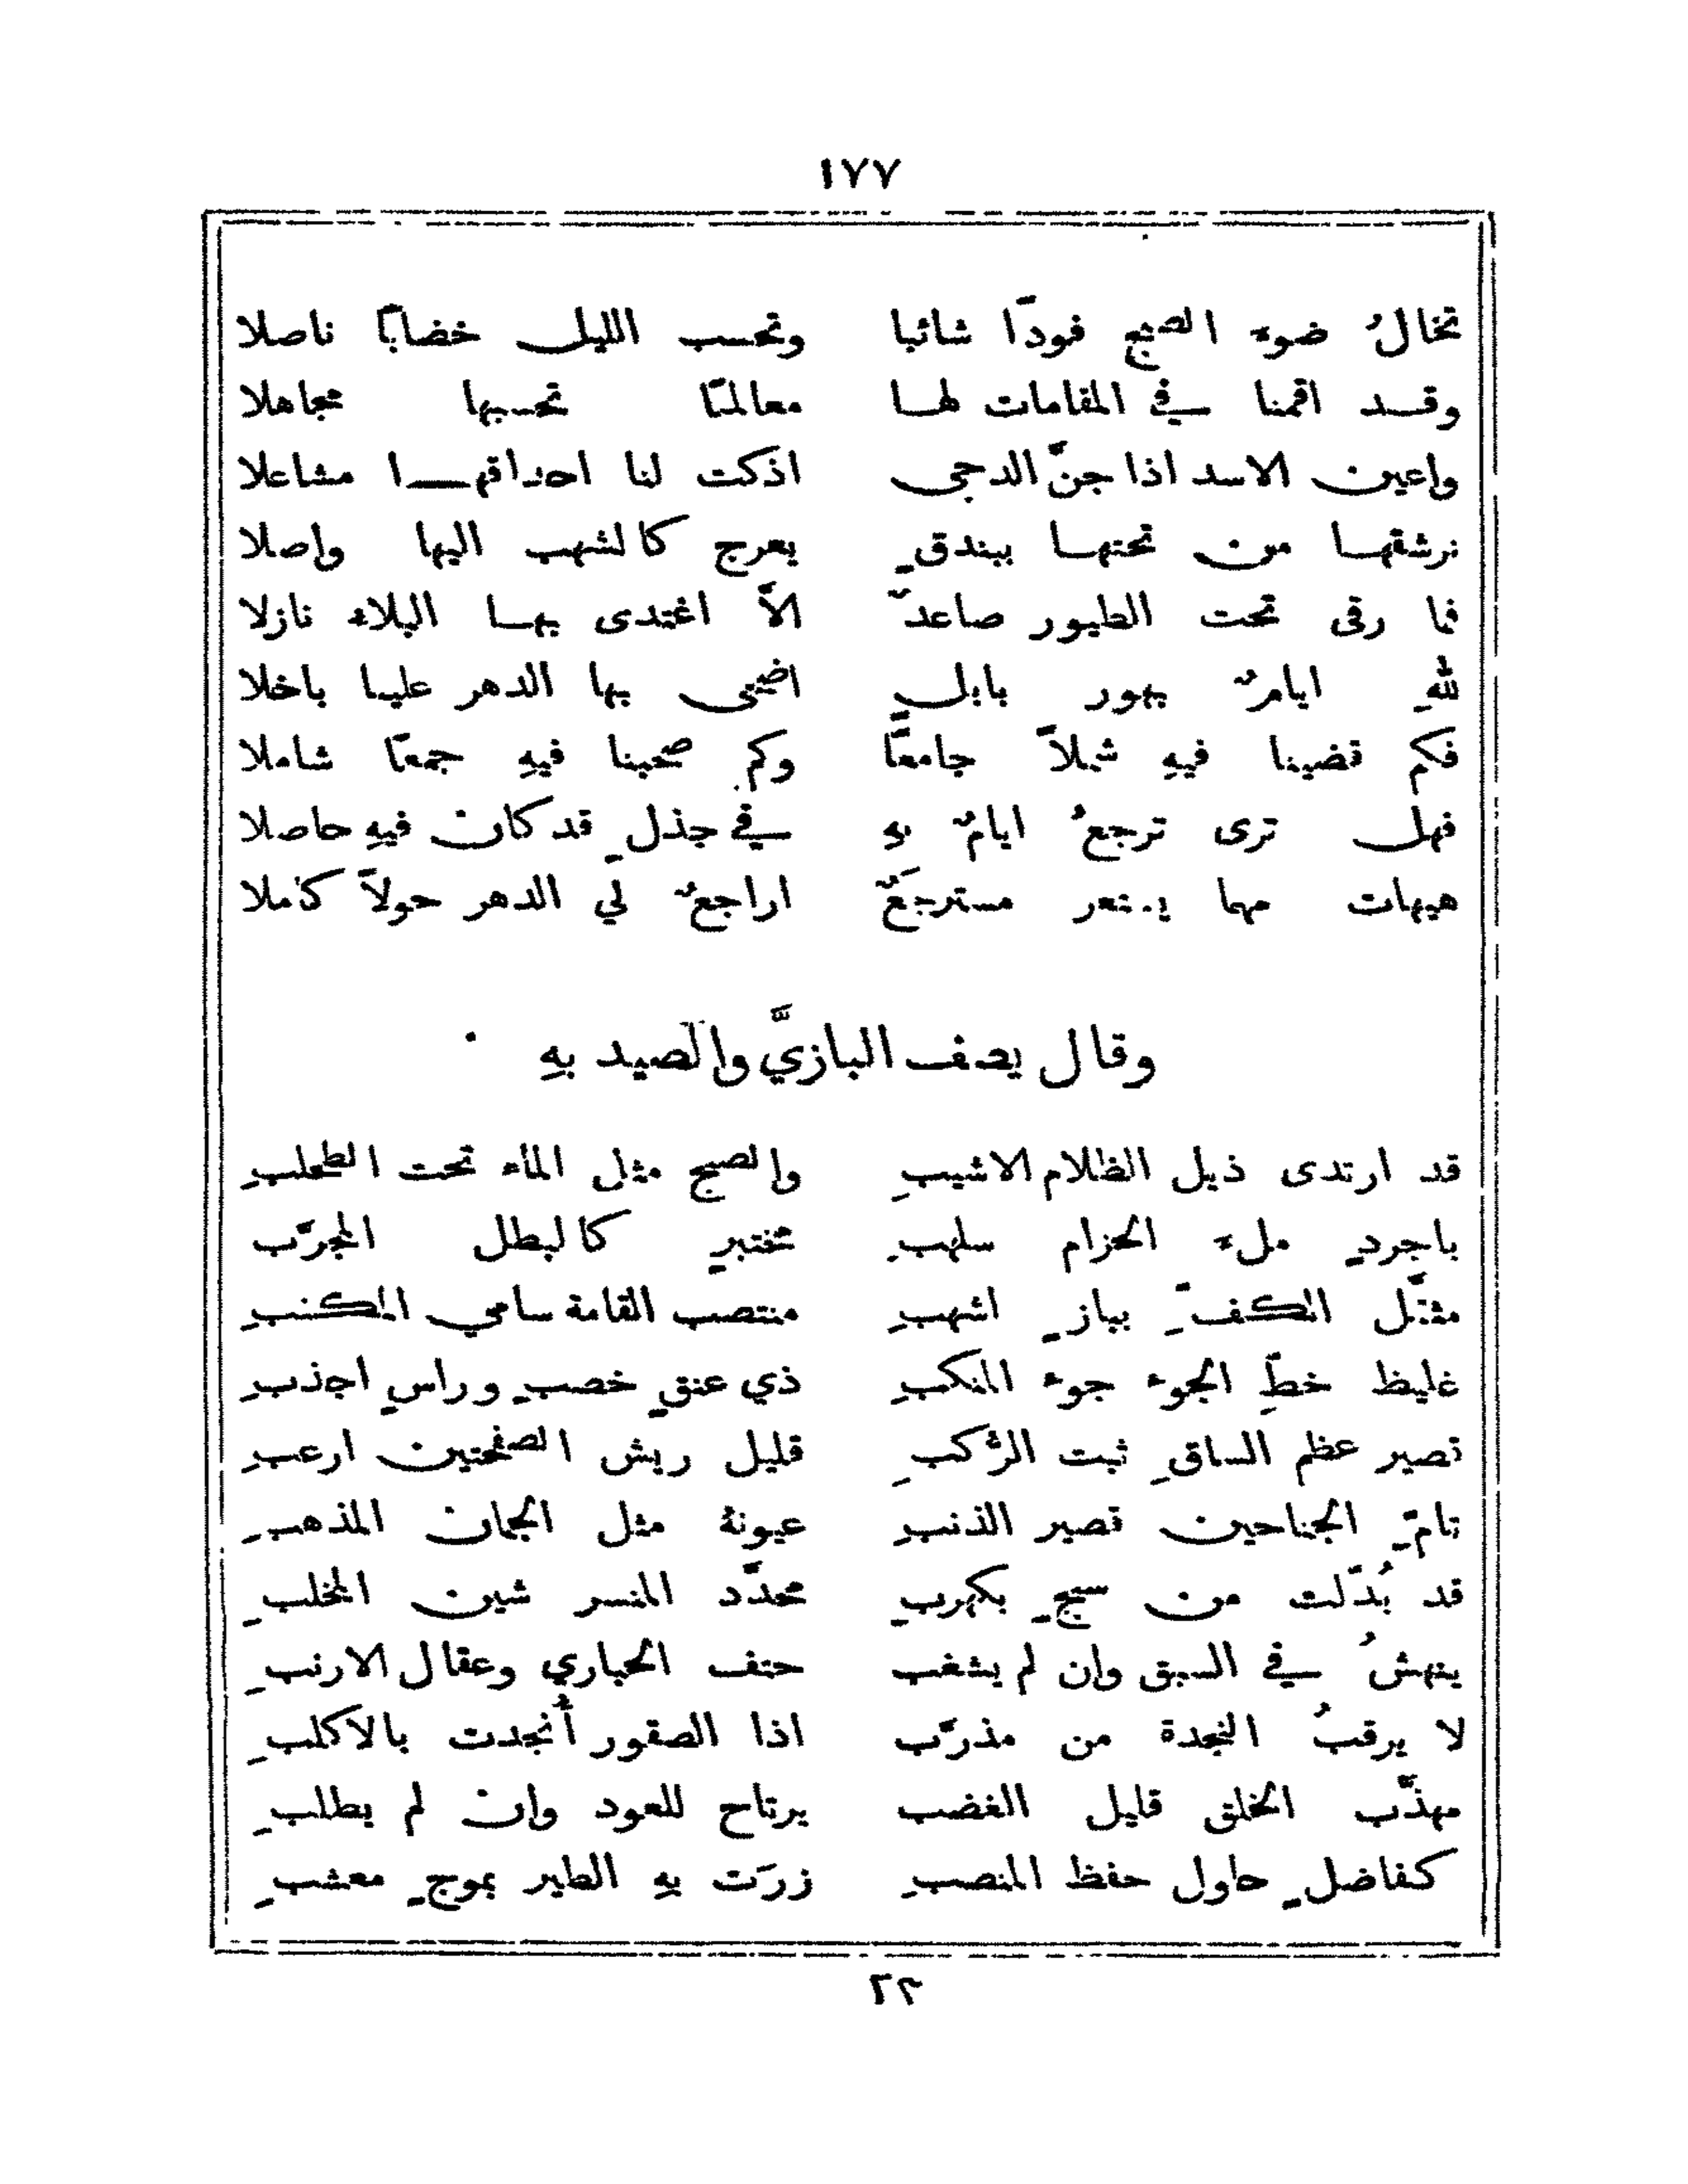 ١٧٧
تخالُ ضوء الصبح فودًا شائبا وتحسب الليل خضابًا ناصلا
وقد اقمنا في المقامات لها معالمًا تحسبها مجاهلا
واعين الاسد اذا جنَّ الدجى اذكت لنا احداقها مشاعلا
نرشقها من تحتها ببندقٍ يعرج كالشهب اليها واصلا
فما رقى تحت الطيور صاعدٌ الاَّ اغتدى بها البلاء نازلا
للهِ ايامٌ بهور بابل اضحى بها الدهر علينا باخلا
فكم قضينا فيهِ شملاً جامعًا وكم صحبنا فيهِ جمعًا شاملا
فهل ترى ترجعُ ايامٌ بهِ في جذلٍ قد كان فيهِ حاصلا
هيهات مهما يستعر مسترجَعٌ اراجعٌ لي الدهر حولاً كاملا
وقال يصف البازيَّ والصيد بهِ
قد ارتدى ذيل الظلام الاشيبِ والصبح مثل الماء تحت الطحلبِ
باجردٍ ملء الحزام سلهبِ مختبرٍ كالبطل المجرَّب
مثقَّل الكفِّ ببازٍ اشهبِ منتصب القامة سامي المنكبِ
غليظ خطِّ الجوء جوء المنكبِ ذي عنقٍ خصبٍ وراسٍ اجذبِ
قصير عظم الساقِ ثبت الرُّكبِ قليل ريش الصفحتين ارعبِ
تامّ الجناحين قصير الذنبِ عيونهُ مثل الجمان المذهبِ
قد بُدّلت من سبجٍ بكهربِ محدَّد المنسر شين المخلبِ
ينهشُ في السبق وان لم يشغب حتف الحباري وعقال الارنبِ
لا يرقبُ النجدة من مذرَّب اذا الصقور أُنجدت بالاكلبِ
مهذَّب الخلق قليل الغضب يرتاح للعود وان لم يطلبِ
كفاضلٍ حاول حفظ المنصبِ زرَت بهِ الطير بموجٍ معشبِ
٢٣